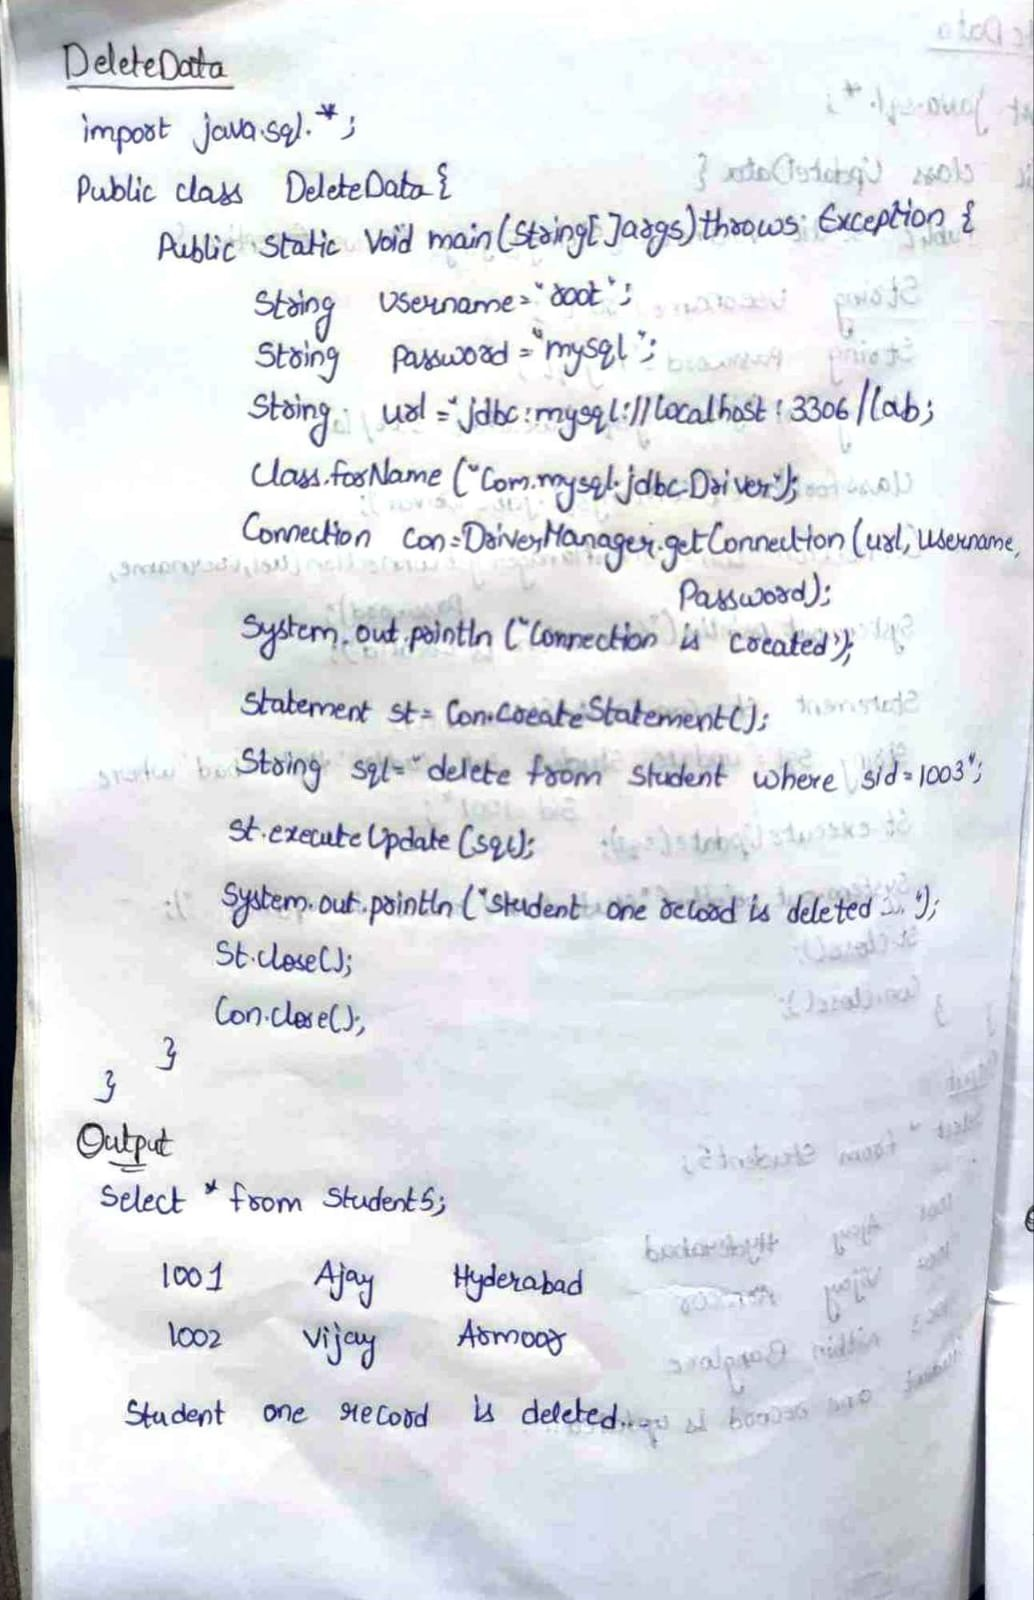 DeleteData
import java.sql.*;
Public class DeleteData {
Public Static Void main(String[]args) throws Exception {
String Username="root";
String Password="mysql";
String url="jdbc:mysql://localhost:3306/lab;
Class.forName("Com.mysql.jdbc.Driver");
Connection Con=DriverManager.getConnection(url, Username,
Password);
System.out.println("Connection is created");
Statement st= Con.CreateStatement();
String sql="delete from student where sid=1003";
St.executeUpdate(sql);
System.out.println("Student one record is deleted...");
St.close();
Con.close();
}
}
Output
Select * from Student5;
1001 Ajay Hyderabad
1002 Vijay Armoor
Student one record is deleted...